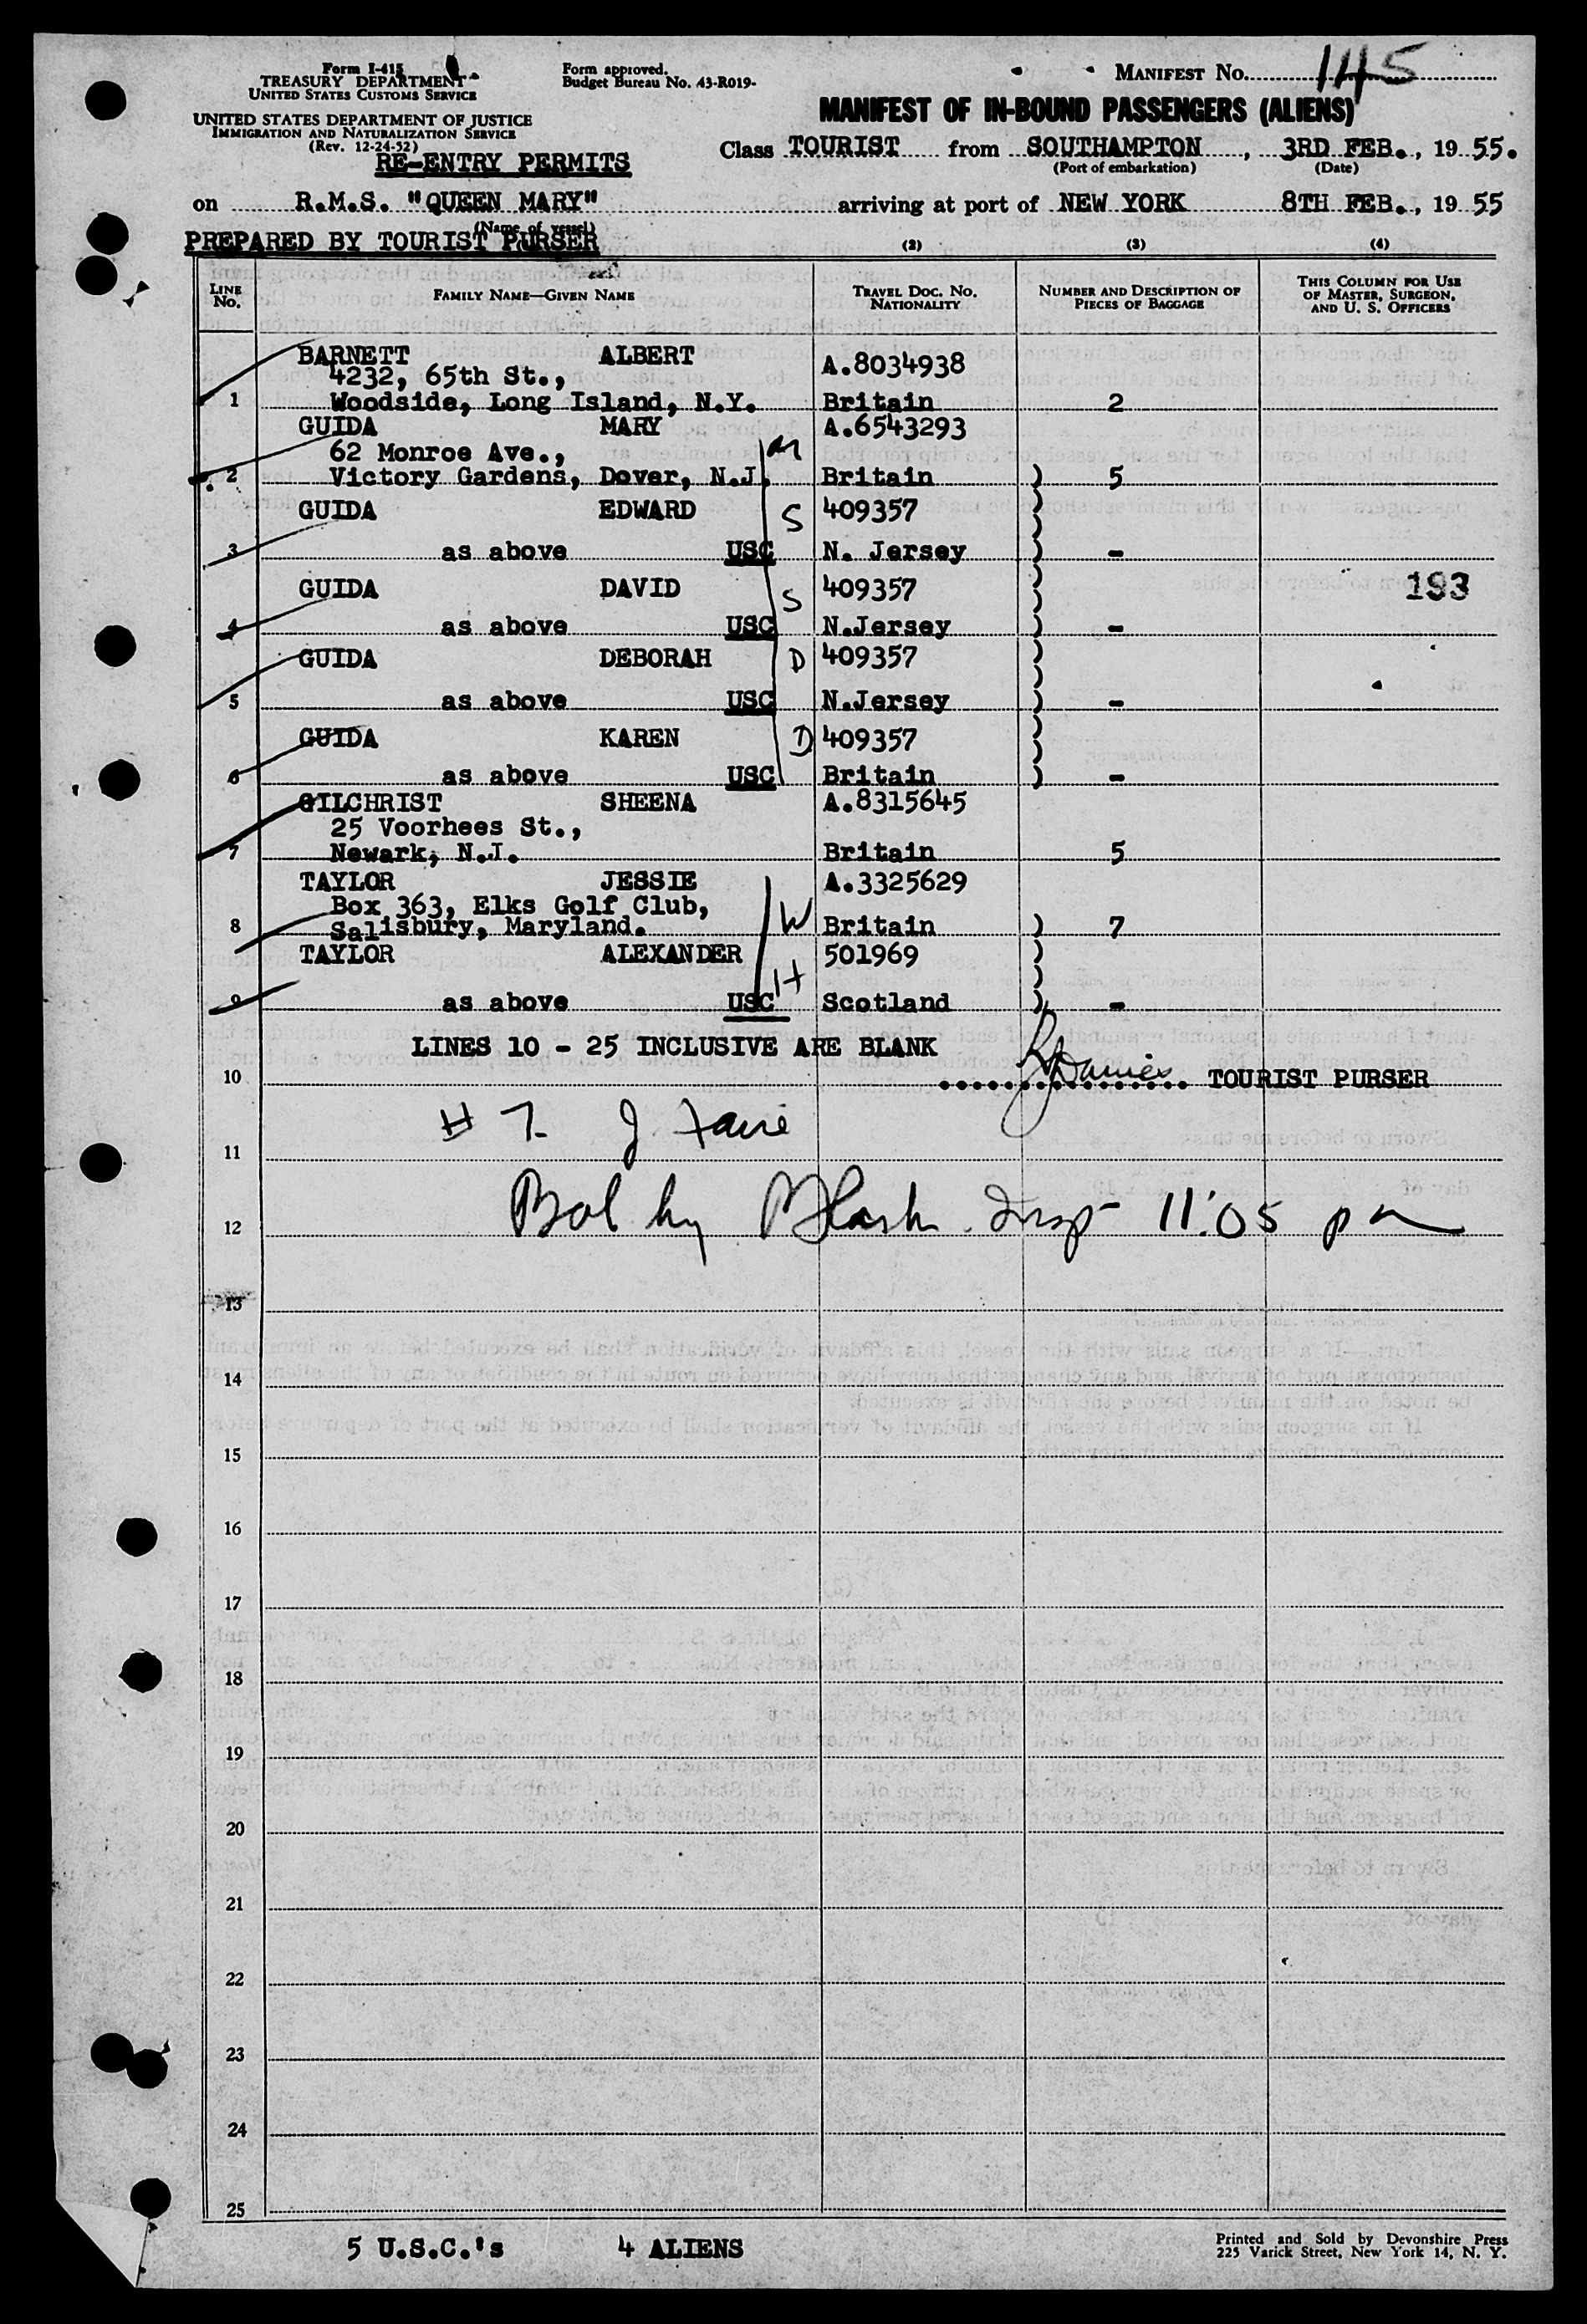 Form I-415
TREASURY DEPARTMENT
UNITED STATES CUSTOMS SERVICE
UNITED STATES DEPARTMENT OF JUSTICE
IMMIGRATION AND NATURALIZATION SERVICE
(Rev. 12-24-52)
RE-ENTRY PERMITS
Form approved.
Budget Bureau No. 43-R019-
MANIFEST No. 145
MANIFEST OF IN-BOUND PASSENGERS (ALIENS)
Class TOURIST from SOUTHAMPTON, 3RD FEB., 19 55.
(Port of embarkation) (Date)
on R.M.S. "QUEEN MARY" arriving at port of NEW YORK 8TH FEB., 19 55
(Name of vessel)
PREPARED BY TOURIST PURSER
(2) (3) (4)
LINE No. FAMILY NAME—GIVEN NAME TRAVEL DOC. NO. NATIONALITY NUMBER AND DESCRIPTION OF PIECES OF BAGGAGE THIS COLUMN FOR USE OF MASTER, SURGEON, AND U. S. OFFICERS
BARNETT ALBERT A.8034938
4232, 65th St.,
1 Woodside, Long Island, N.Y. Britain 2
GUIDA MARY A.6543293
62 Monroe Ave., M
2 Victory Gardens, Dover, N.J. Britain ) 5
GUIDA EDWARD S 409357 )
3 as above USC N. Jersey ) -
GUIDA DAVID S 409357 ) 193
4 as above USC N.Jersey ) -
GUIDA DEBORAH D 409357 )
5 as above USC N.Jersey ) -
GUIDA KAREN D 409357 )
6 as above USC Britain ) -
GILCHRIST SHEENA A.8315645
25 Voorhees St.,
7 Newark, N.J. Britain 5
TAYLOR JESSIE A.3325629
Box 363, Elks Golf Club,
8 Salisbury, Maryland. W Britain ) 7
TAYLOR ALEXANDER 501969 )
9 as above USC H Scotland ) -
LINES 10 - 25 INCLUSIVE ARE BLANK
10 Davies TOURIST PURSER
# 7 J
11
12 Bal by Insp 11:05 pm
13
14
15
16
17
18
19
20
21
22
23
24
25
5 U.S.C.'s 4 ALIENS
Printed and Sold by Devonshire Press
225 Varick Street, New York 14, N. Y.